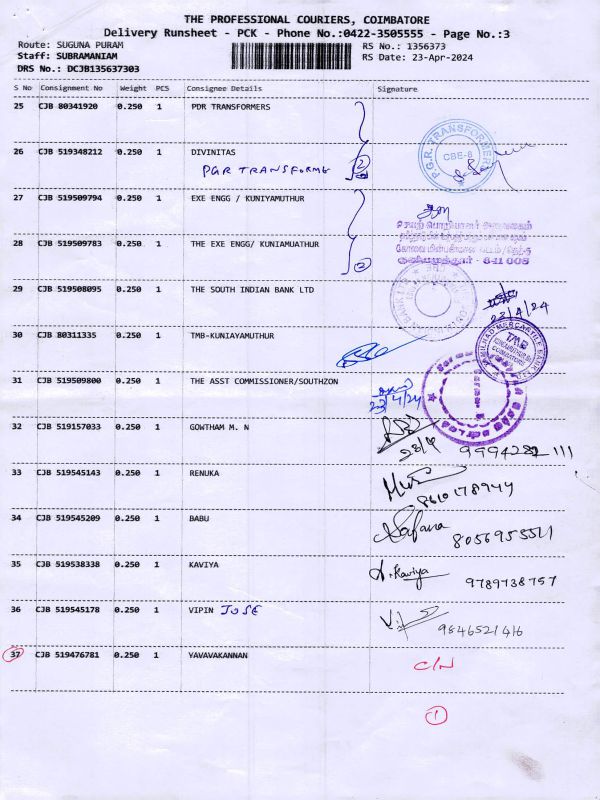 THE PROFESSIONAL COURIERS, COIMBATORE
Delivery Runsheet - PCK - Phone No.:0422-3505555 - Page No.:3
Route: SUGUNA PURAM RS No.: 1356373
Staff: SUBRAMANIAM RS Date: 23-Apr-2024
DRS No.: DCJB135637303
S No Consignment No Weight PCS Consignee Details Signature
25 CJB 80341920 0.250 1 PDR TRANSFORMERS
26 CJB 519348212 0.250 1 DIVINITAS
PGR TRANSFORME 2
P.G.R. TRANSFORMERS
CBE-8
27 CJB 519509794 0.250 1 EXE ENGG / KUNIYAMUTHUR
28 CJB 519509783 0.250 1 THE EXE ENGG/ KUNIAMUATHUR
2
641 008
29 CJB 519508095 0.250 1 THE SOUTH INDIAN BANK LTD
23/4/24
30 CJB 80311335 0.250 1 TMB-KUNIAYAMUTHUR
TAMILNAD MERCANTILE BANK LTD
TMB
COIMBATORE
31 CJB 519509800 0.250 1 THE ASST COMMISSIONER/SOUTHZON
23/4/24
32 CJB 519157033 0.250 1 GOWTHAM M. N
23/4 9994282 111
33 CJB 519545143 0.250 1 RENUKA
8610178944
34 CJB 519545209 0.250 1 BABU
Safana 8056955511
35 CJB 519538338 0.250 1 KAVIYA
A. Kaviya 9789738757
36 CJB 519545178 0.250 1 VIPIN JOSE
9846521416
37 CJB 519476781 0.250 1 YAVAVAKANNAN
C/N
1